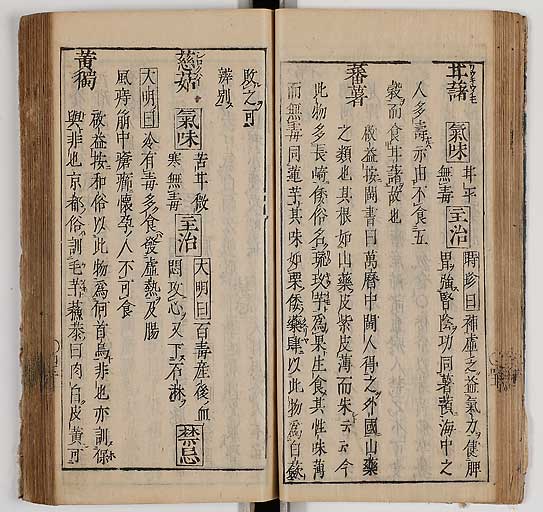 甘藷 氣味 甘平無毒 主治 時珍曰補虛乏益氣力健脾胃強腎陰功同薯蕷海中之
人多壽亦由不食五
穀而食甘藷故也
蕃薯
啟益按閩書曰萬曆中閩人得之外國山藥
之類也其根如山藥皮紫皮薄而朱云云今
此物多長崎倭俗名琉玖芋為果生食其性味薄
而無毒同蓮芋其味如栗倭藥肆以此物為白蘞
攺之可
辨別
慈姑 氣味 苦甘微寒無毒 主治 大明曰百毒產後血悶攻心又下石淋 禁忌
大明曰冷有毒多食發虛熱及腸
風痔崩中帶孕人不可食
黃獨
啟益按和俗以此物為何首烏非也亦訓保
與非也京都俗訓毛芋蘓恭曰肉白皮黃可